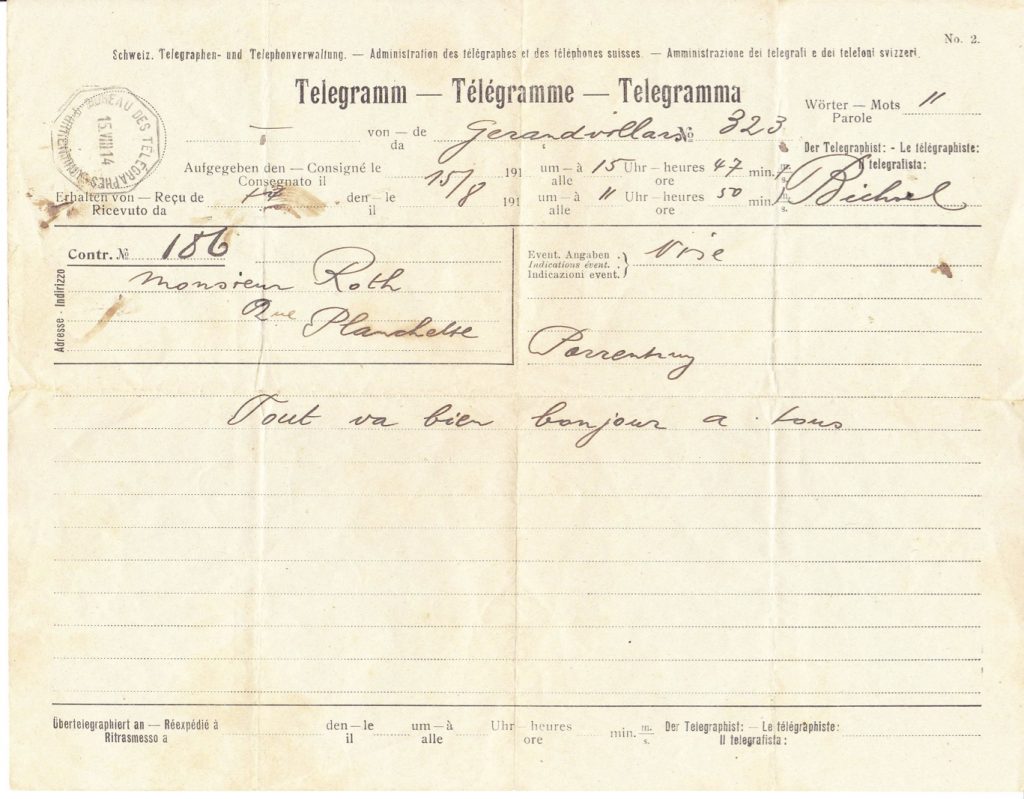 No. 2.
Schweiz. Telegraphen- und Telephonverwaltung. — Administration des télégraphes et des téléphones suisses. — Amministrazione dei telegrafi e dei telefoni svizzeri.
Telegramm — Télégramme — Telegramma
Wörter — Mots 11
Parole
BUREAU DES TÉLÉGRAPHES
15.VIII.14
von — de Gerandvillars № 323
da
Der Telegraphist: - Le télégraphiste:
Il telegrafista:
Aufgegeben den — Consigné le 15/8 191 um — à 15 Uhr — heures 47 min. m. s.
Consegnato il alle ore
Bichsel
Erhalten von — Reçu de den — le 191 um — à 11 Uhr — heures 50 min. m. s.
Ricevuto da il alle ore
Contr. № 186
Adresse - Indirizzo
Monsieur Roth
Rue
Planchette
Event. Angaben
Indications évent.
Indicazioni event.
Porrentruy
Tout va bien bonjour a tous
Übertelegraphiert an — Réexpédié à den — le um — à Uhr — heures min. m. s. Der Telegraphist: — Le télégraphiste:
Ritrasmesso a il alle ore Il telegrafista: